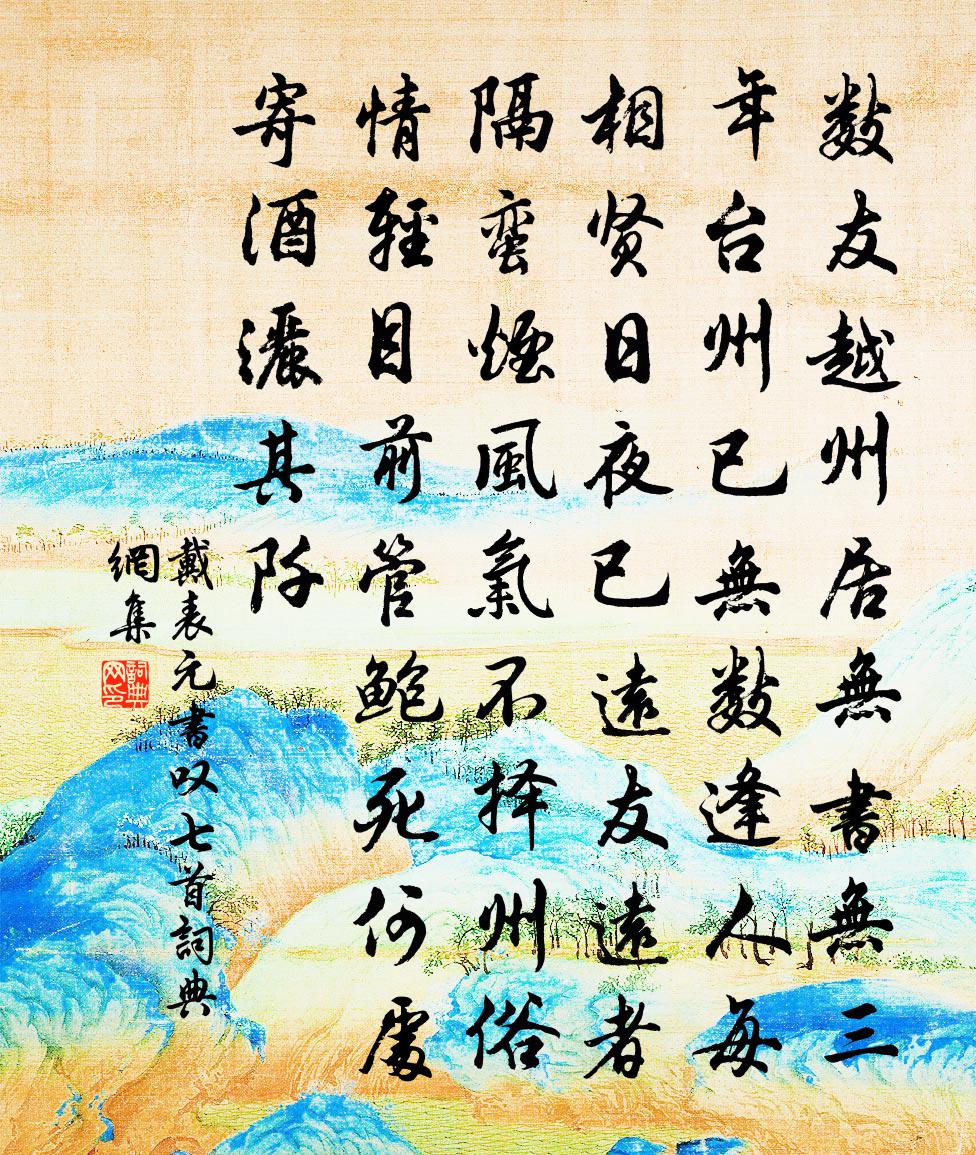 数友越州居無書無三
年台州已無数逢人每
相贤日夜已遠友遠者
隔蛮煙風氣不择州俗
情輕目前管鲍死何處
寄酒灑其阡
戴表元書叹七首詞典
網集
詞典网印